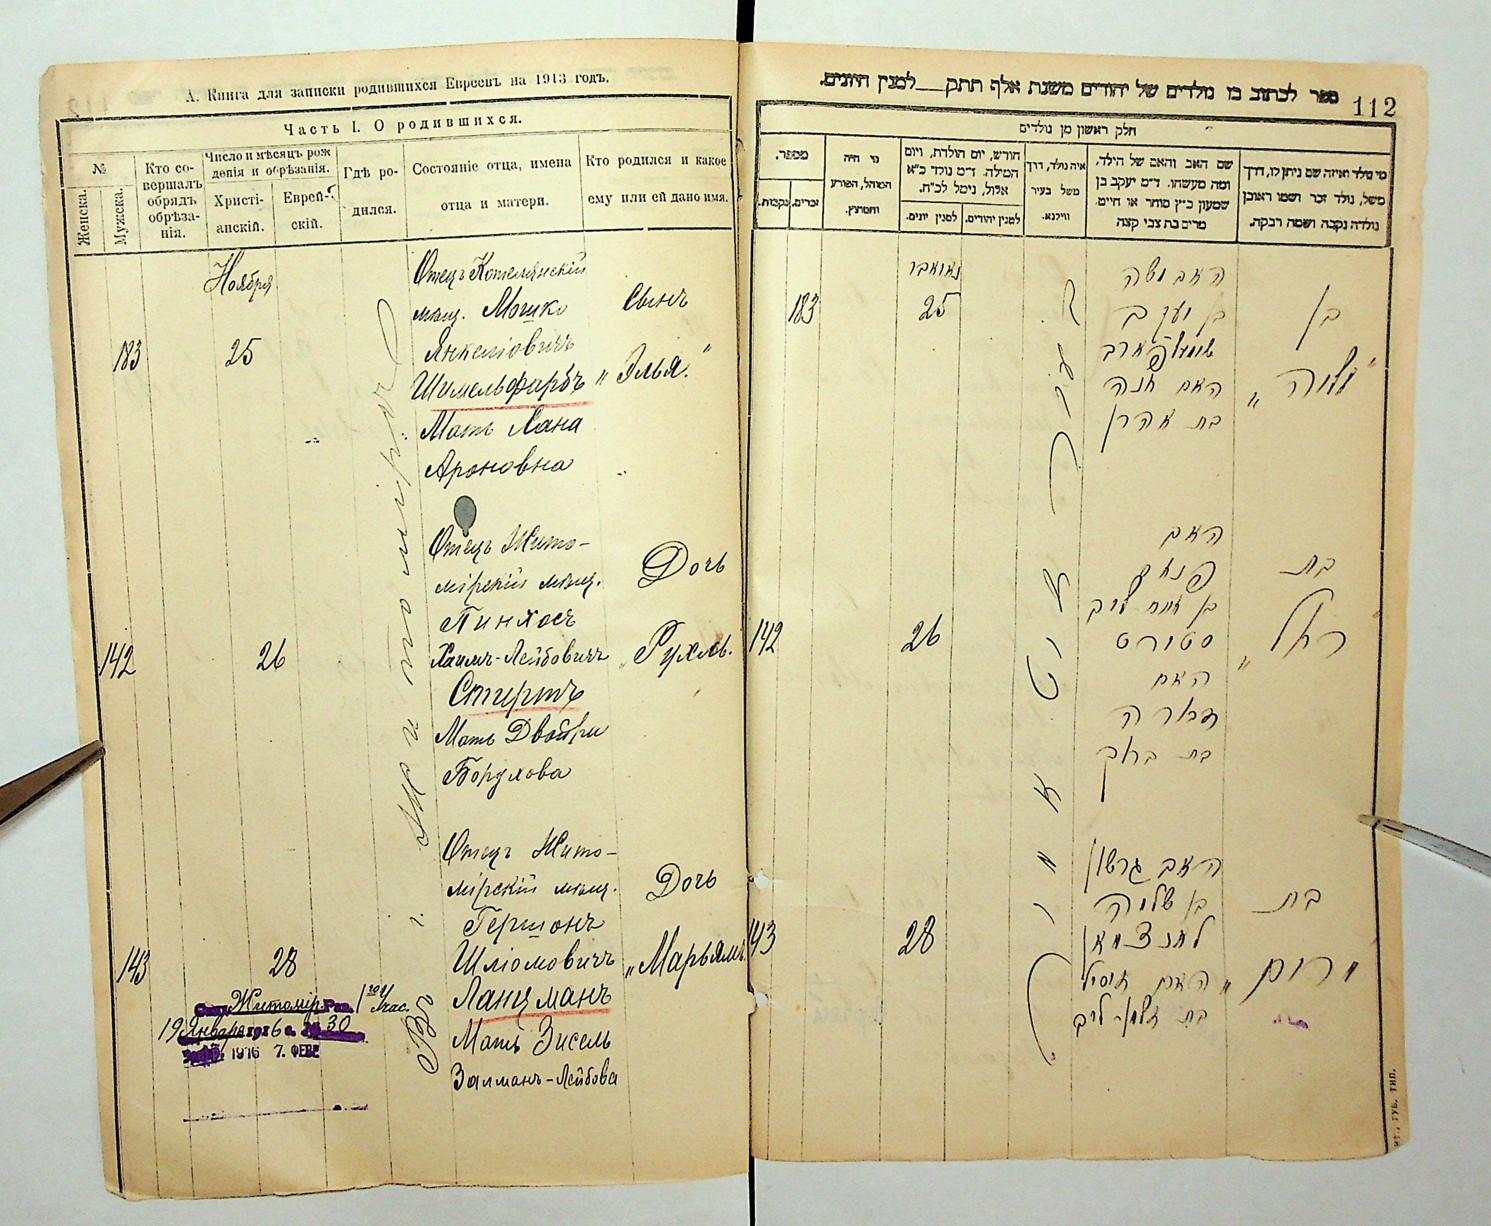 А. Книга для записки родившихся Евреевъ на 1913 годъ.
Часть I. О родившихся.
№
Женска.
Мужска.
Кто со-
вершалъ
обрядъ
обрѣза-
нія.
Число и мѣсяцъ рож
денія и обрѣзанія.
Христі-
анскій.
Еврей-
скій.
Гдѣ ро-
дился.
Состояніе отца, имена
отца и матери.
Кто родился и какое
ему или ей дано имя.
Ноября
183
25
Отецъ Котелянскій
мѣщ. Мошко
Янкеліовичъ
Шимельфарбъ
Мать Хана
Ароновна
Сынъ
„Элья.“
142
26
Отецъ Жито-
мірскій мѣщ.
Пинхосъ
Хаимъ-Лейбовичъ
Стиртъ
Мать Двойри
Борухова
Дочь
„Рухль.
143
28
Отецъ Жито-
мірскій мѣщ.
Гершонъ
Шліомовичъ
Ланцманъ
Мать Зисель
Залманъ-Лейбова
Дочь
„Марьямъ
Въ г. Житомірѣ
Житомір
19 Января 1916 г. № 30
1916 7. ФЕВР
112
ספר לכתוב בו נולדים של יהודים משנת אלף תתק למנין היונים.
חלק ראשון מן נולדים
מי נולד ואיזה שם ניתן לו, דרך
משל, נולד זכר ושמו ראובן
נולדה נקבה ושמה רבקה.
שם האב והאם של הילד,
ומה מעשהו. ד״מ יעקב בן
שמעון כ״ץ סוחר או חייט.
מרים בת צבי קצה
איה נולד, דרך
משל בעיר
ווילנא.
חודש, יום הולדת, ויום
המילה. ד״מ נולד כ״א
אלול, נימל לכ״ח.
למנין יהודים.
למנין יונים.
מי היה
המוהל, הפורע
והמוצץ.
מספר.
זכרים.
נקבות.
נאוואבר
183
25
האב משה
בן יעקב
שימעלפארב
האם חנה
בת אהרן
בן
„אליה“
142
26
האב
פנחס
בן חיים ליב
סטירט
האם
דבורה
בת ברוך
בת
„רחל
143
28
האב גרשון
בן שלמה
לאנצמאן
האם זיסיל
בת זלמן ליב
בת
„מרים
זיטאמיר